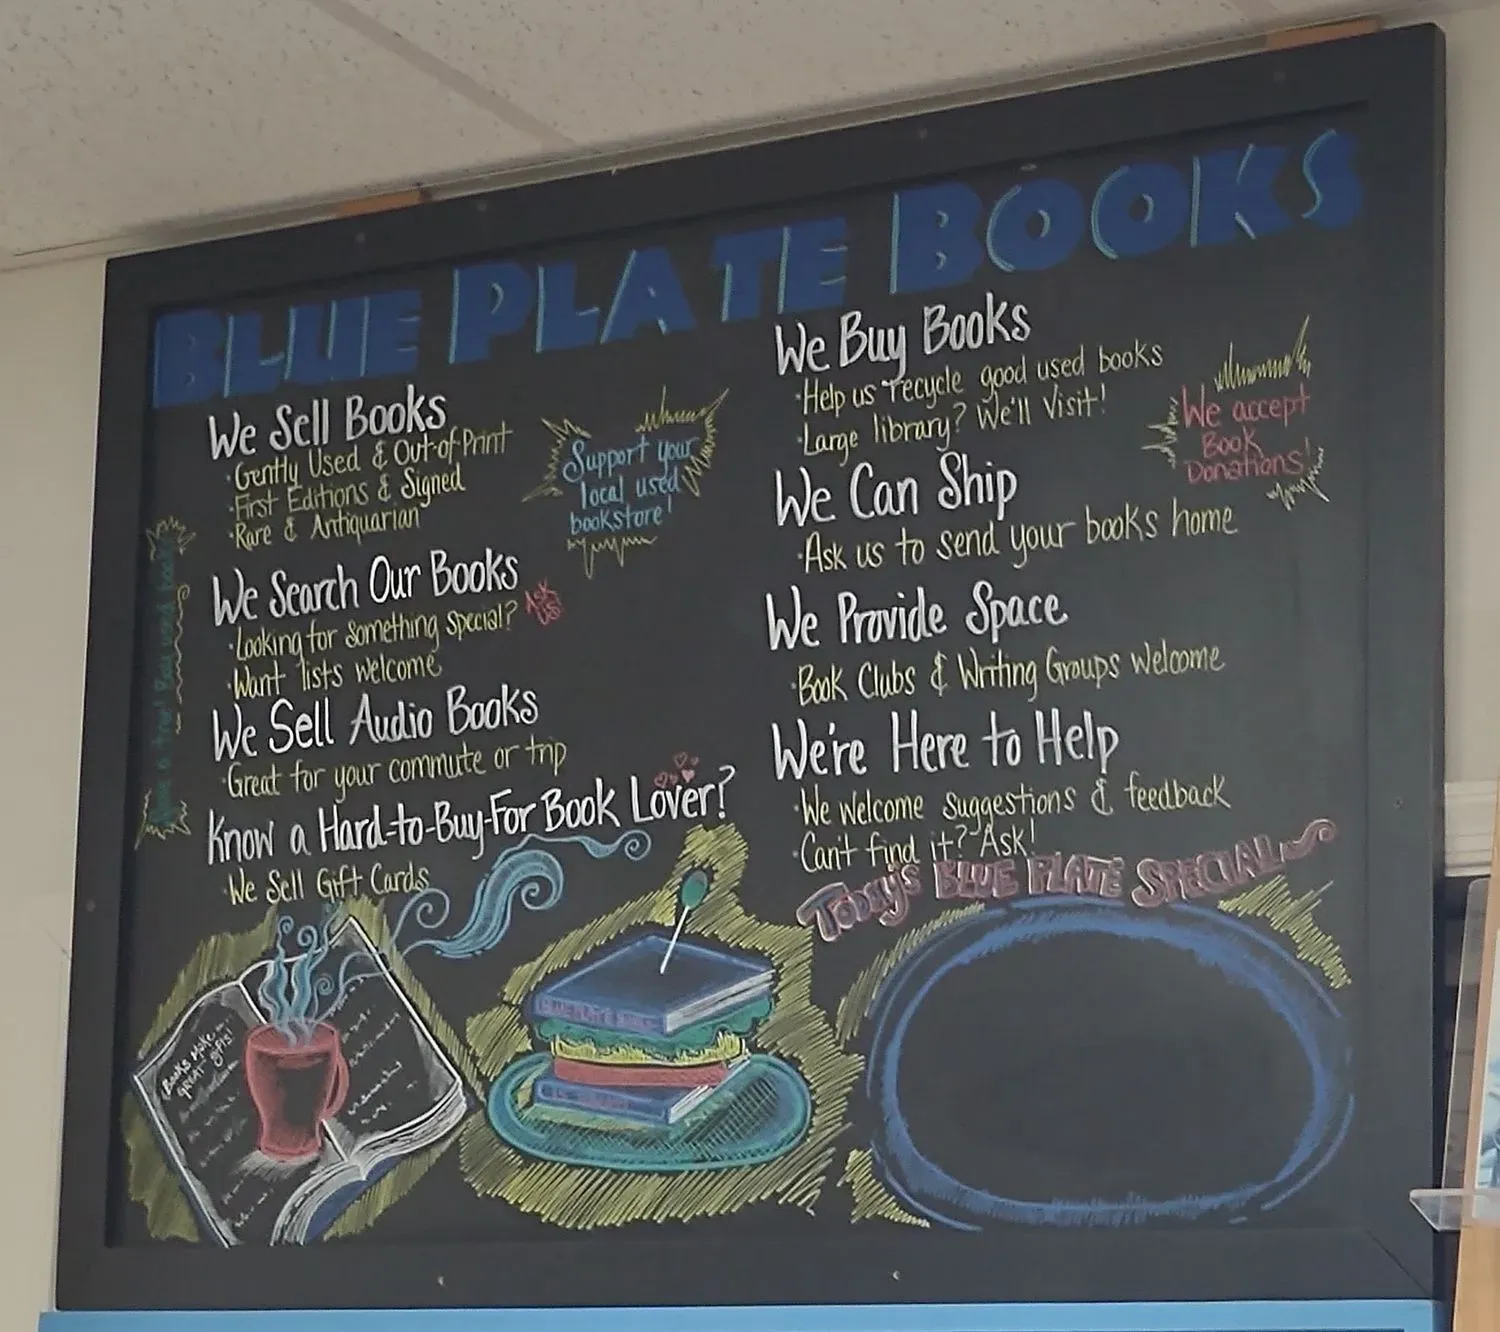 BLUE PLATE BOOKS
We Sell Books
·Gently Used & Out-of-Print
·First Editions & Signed
·Rare & Antiquarian
Support your
local used
bookstore!
We Search Our Books
·Looking for something special?
ASK
US
·Want lists welcome
We Sell Audio Books
·Great for your commute or trip
Know a Hard-to-Buy-For Book Lover?
·We Sell Gift Cards
We Buy Books
·Help us recycle good used books
·Large library? We'll Visit!
We accept
Book
Donations!
We Can Ship
·Ask us to send your books home
We Provide Space
·Book Clubs & Writing Groups Welcome
We're Here to Help
·We welcome suggestions & feedback
·Can't find it? Ask!
TODAY'S BLUE PLATE SPECIAL
Save a tree! Buy used books
Books Make
GREAT gifts!
BLUE PLATE